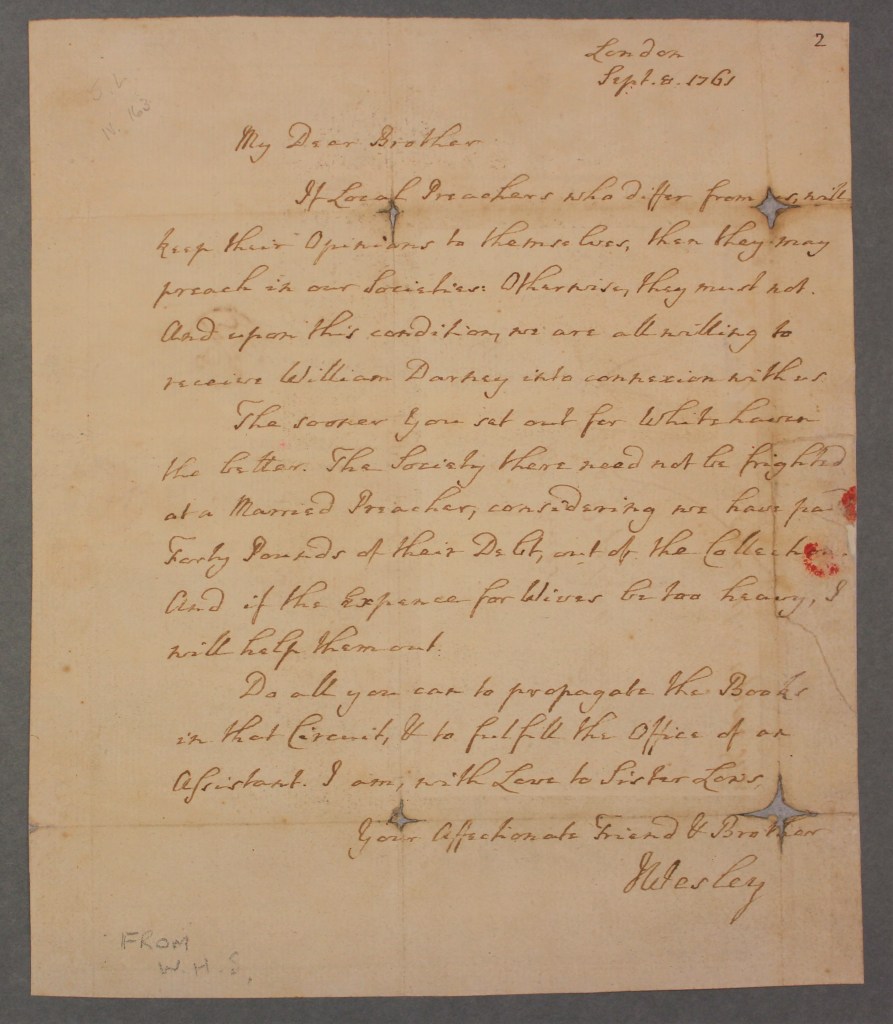 2
London
Sept. 8. 1761
J L
IV. 163
My Dear Brother
If Local Preachers who differ from us, will
keep their Opinions to themselves, then they may
preach in our Societies: Otherwise, they must not.
And upon this condition, we are all willing to
receive William Darney into connexion with us
The sooner you set out for Whitehaven
the better. The Society there need not be frighted
at a Married Preacher, considering we have paid
Forty Pounds of their Debt, out of the Collection.
And if the Expence for Wives be too heavy, I
will help them out.
Do all you can to propagate the Books
in that Circuit, & to fulfill the Office of an
Assistant. I am, with Love to Sister Lows,
Your Affectionate Friend & Brother
JWesley
FROM
W. H. S.